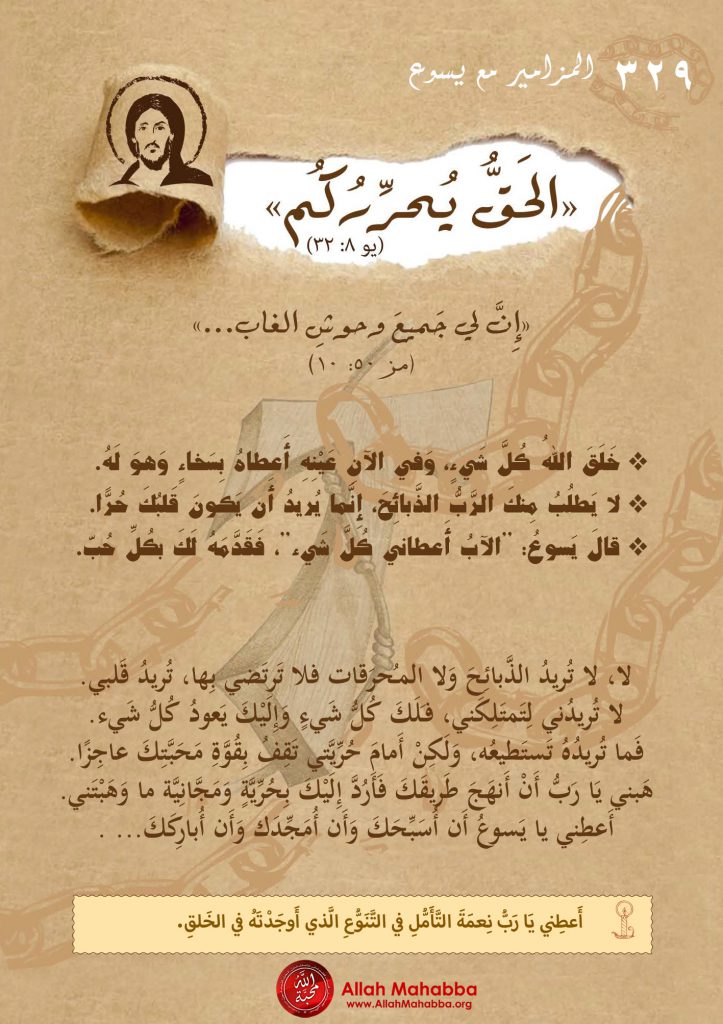 ٣٢٩ المزامير مع يسوع
«الحَقُّ يُحرِّرُكُم»
(يو ٨: ٣٢)
«إِنَّ لي جَميعَ وحوشِ الغاب...»
(مز ٥٠: ١٠)
❖ خَلَقَ اللهُ كُلَّ شَيءٍ، وَفي الآنِ عَيْنِهِ أَعطاهُ بِسَخاءٍ وَهوَ لَهُ.
❖ لا يَطلُبُ مِنكَ الرَّبُّ الذَّبائِحَ، إِنَّما يُريدُ أَن يَكونَ قَلبُكَ حُرًّا.
❖ قالَ يَسوعُ: "الآبُ أَعطاني كُلَّ شَيء"، فَقَدَّمَهُ لَكَ بِكُلِّ حُبّ.
لا، لا تُريدُ الذَّبائِحَ وَلا المُحرَقات فلا تَرتَضي بِها، تُريدُ قَلبي.
لا تُريدُني لِتَمتَلِكَني، فَلَكَ كُلُّ شَيءٍ وَإِلَيْكَ يَعودُ كُلُّ شَيء.
فَما تُريدُهُ تَستَطيعُه، وَلَكِنْ أَمامَ حُرِّيَّتي تَقِفُ بِقُوَّةِ مَحَبَّتِكَ عاجِزًا.
هَبني يَا رَبُّ أَنْ أَنهَجَ طَريقَكَ فَأَرُدَّ إِلَيْكَ بِحُرِّيَّةٍ وَمَجَّانِيَّة ما وَهَبْتَني.
أَعطِني يا يَسوعُ أَن أُسَبِّحَكَ وَأَن أُمَجِّدَكَ وَأَن أُبارِكَكَ... .
أَعطِني يَا رَبُّ نِعمَةَ التَّأَمُّلِ في التَّنَوُّعِ الَّذي أَوجَدْتَهُ في الخَلقِ.
الله محبّة
Allah Mahabba
www.AllahMahabba.org